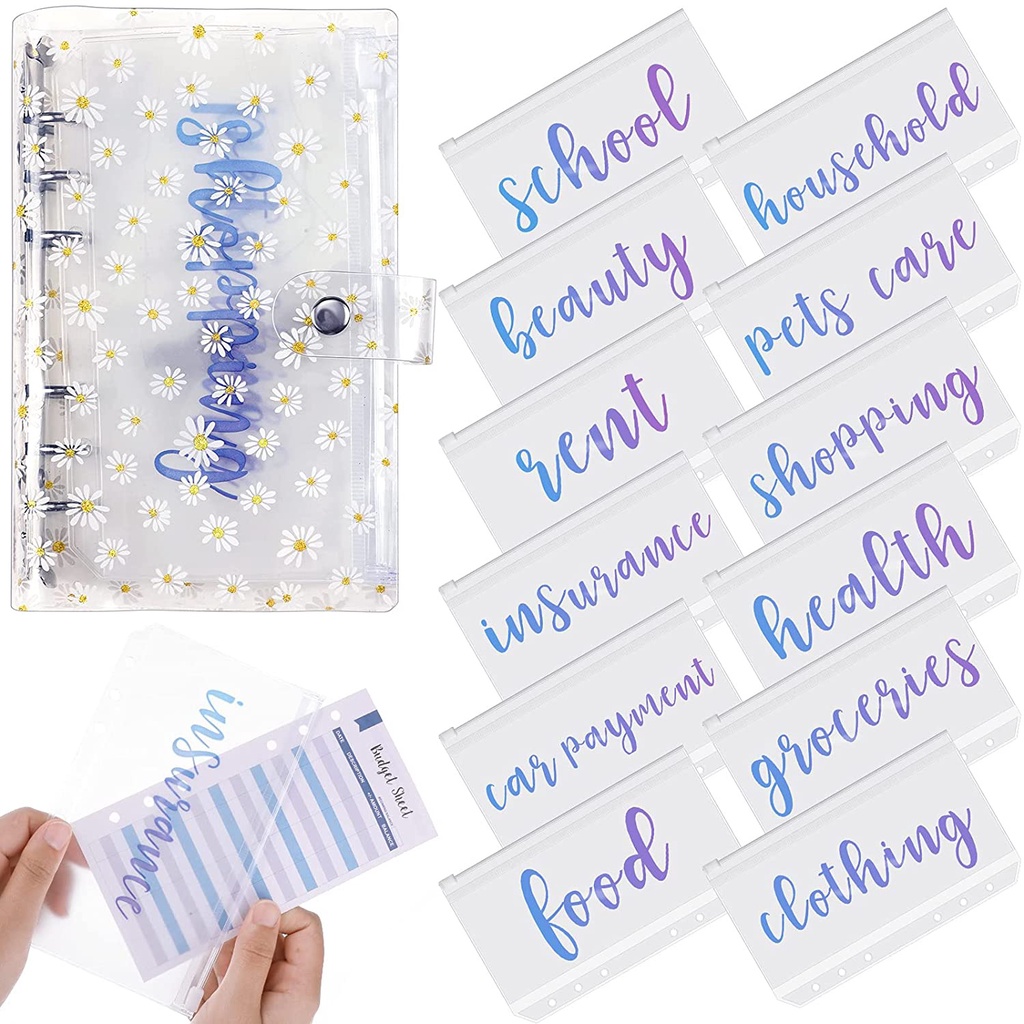 shopping
school
household
beauty
pets care
rent
shopping
insurance
health
car payment
groceries
food
clothing
insurance
Budget Sheet
DATE
DESCRIPTION
+/- AMOUNT
BALANCE